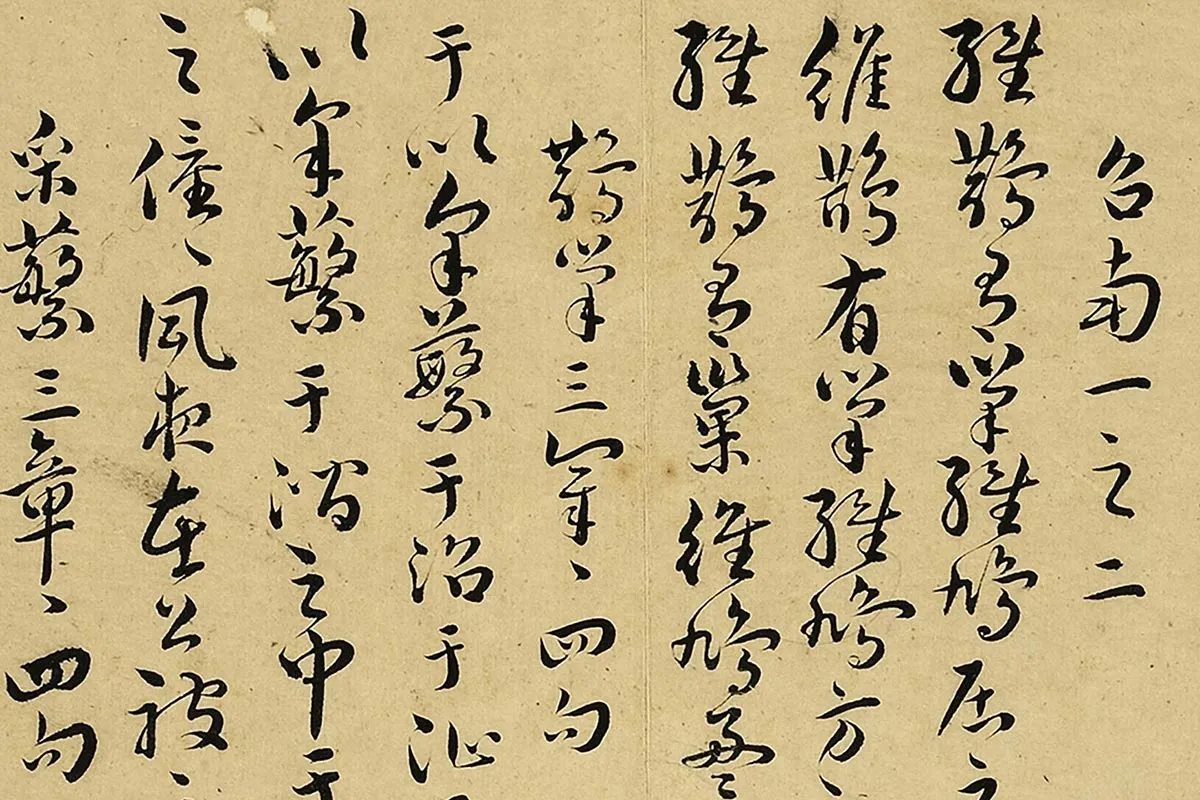 召南一之二
維鵲有巢維鳩居之
維鵲有巢維鳩方
維鵲有巢維鳩盈
鵲巢三章〻四句
于以采蘩于沼于沚
以采蘩于澗之中于
之僮〻夙夜在公被
采蘩三章〻四句